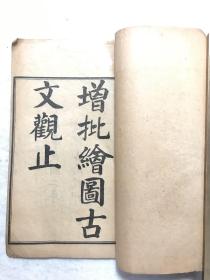 增批繪圖古
文觀止